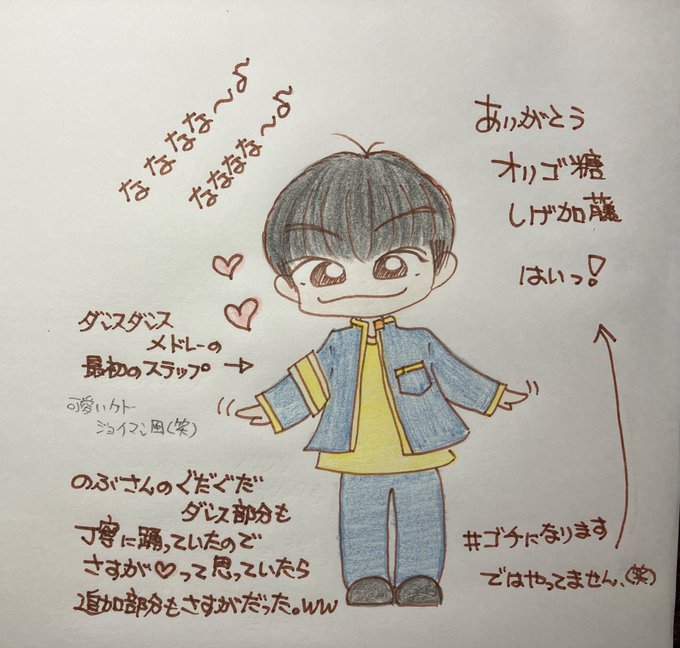 なななな〜♪
なななな〜♪
ありがとう
オリゴ糖
しげ加藤
はいっ!
ダンスダンス
メドレーの
最初のステップ→
可愛いケド
ジョイマン風(笑)
のぶさんのぐだぐだ
ダンス部分も
丁寧に踊っていたので
さすが♡って思っていたら
追加部分もさすがだった。ww
#ゴチになります
ではやってません、(笑)